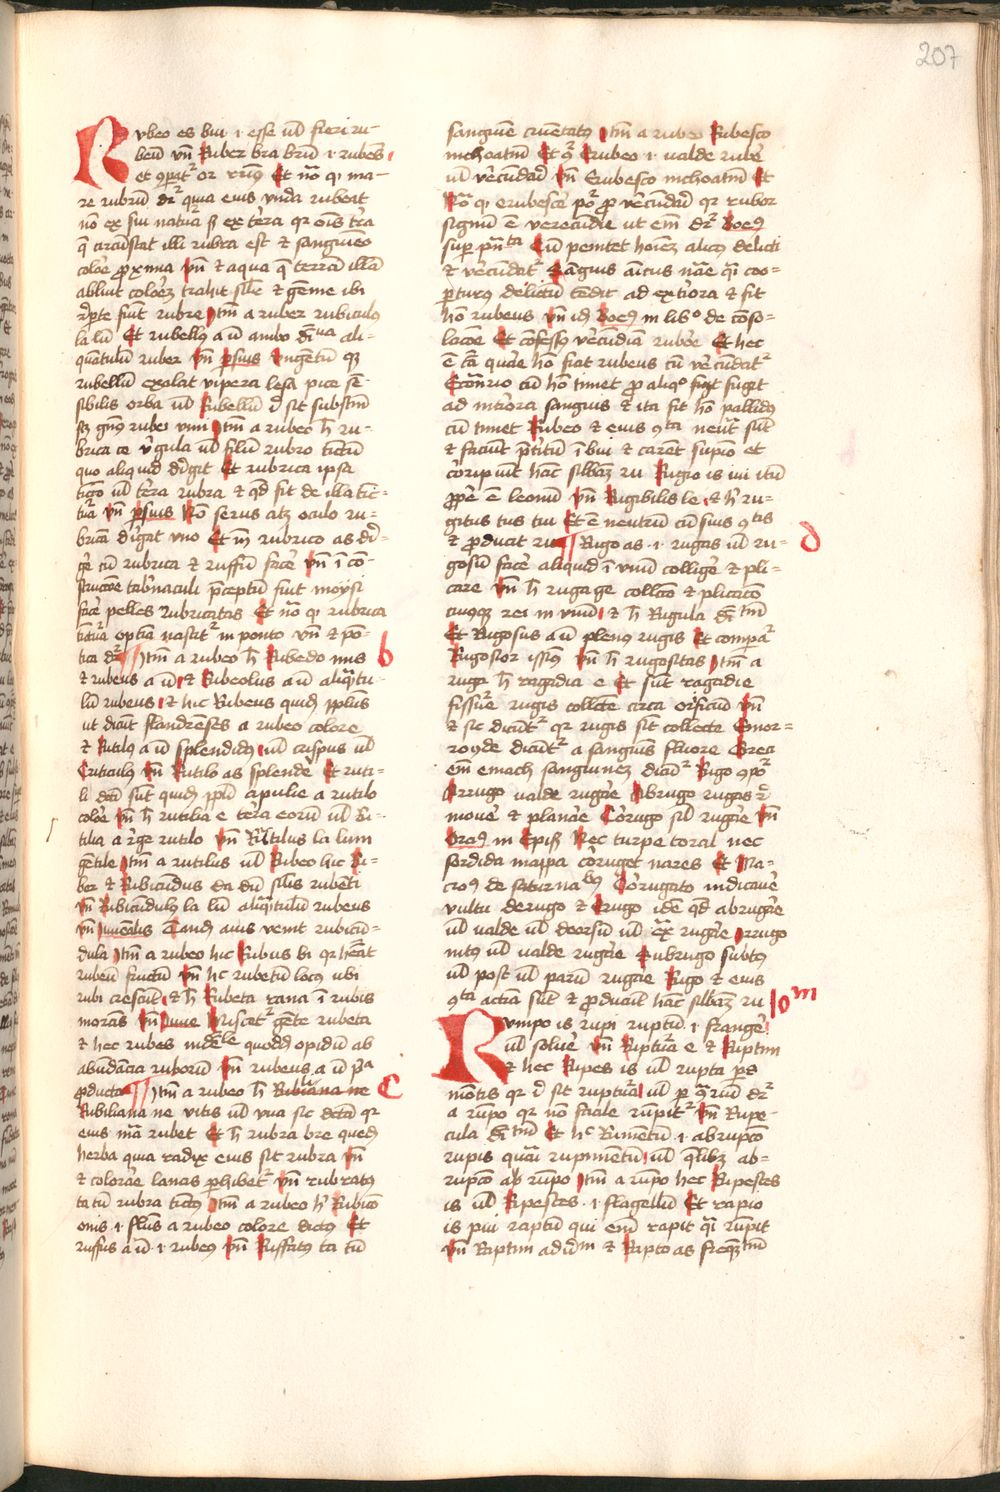 207
Rubeo es bui .i. esse ul̄ fieri ru-
beū vn̄ Ruber bra brū .i. rubeus
et ꝯparat᷑ or rimꝰ Et nō ꝙ ma-
re rubrū dr̄ quia eius vnda rubeat
nō ex sui natura sꝫ ex terra qr̄ om̄s tr̄a
q̄ circūstat illi rubra est ⁊ sanguineo
colore proxima vn̄ ⁊ aqua q̄ terrā illā
abluit colorē trahit sil̄e ⁊ gēme ibi
reperte sunt rubre Itm̄ a ruber rubiculꝰ
la lū Et rubellus a ū ambo dīnīua ali-
quātulū ruber vn̄ ꝑsius vngētū qꝫ
rubellū exalat vipera lesa pica se-
sibilis orba ul̄ Rubellū ꝙ sit substm̄
sꝫ gnꝰ rubei vini Itm̄ a rubeo h̄ ru-
brica ce v̄gula ul̄ filū rubro tictū
quo aliquid dirigit Et rubrica ipsa
tictio ul̄ terra rubra ⁊ qd̄ fit de illa tic-
tura vn̄ ꝑsius Nō serus atꝫ oculo ru-
bricā dirigat vno Et in̄ rubrico as di-
ge cū rubrica ⁊ ruffū facere vn̄ ī cō-
structione tabernaculi p̄ceptū fuit moysi
facere pelles rubricatas Et nō ꝙ rubrica
optīa nascit᷑ in ponto vn̄ ⁊ pō-
tica dr̄ Itm̄ a rubeo h̄ Rubedo inis b
⁊ rubeus a ū ⁊ Rubeolus a ū aliq̄tu-
lū rubeus ⁊ hic Rubeus quidā ꝓplus
ut dicūt flandrēses a rubeo colore
⁊ Rutilꝰ a ū splendidꝰ ul̄ crispus ul̄
Criticulꝰ vn̄ Rutilo as splende Et ruti-
li dicti sūt quidā ꝓpli apulie a rutilo
colore vn̄ h̄ rutilia e terra eorū ul̄ Ru-
tilia a rege rutilo vn̄ Rutilus la lum
gētile Itm̄ a rutilus ul̄ Rubeo hic Ru-
bor ⁊ Rubicūdus da dū sil̄is rubēti
vn̄ Rubicūdulꝰ la lū aliq̄tulū rubeus
vn̄ Iuuenalis Tandē auis venit rubicū-
dula Itm̄ a rubeo hic Rubus bi qr̄ hēat
rubeū fructū vn̄ hc rubetū locꝰ ubi
rubi crescūt ⁊ h̄ Rubeta rana ī rubis
morans vn̄ Iuue Miscet᷑ gēte rubeta
⁊ hec rubes indecl̄e quoddā opidū ab
abundācia ruborū vn̄ rubeus a ū pa
ꝓducta Itm̄ a rubeo h̄ Rubiana ne c
Rubiliana ne vitis ul̄ vua sic dicta qr̄
eius mā rubet Et h̄ rubra bre quedā
herba quia radix eius sit rubra vn̄
⁊ colorare lanas perhibet᷑ vn̄ rubratꝰ
ta tū rubra tictꝰ Itm̄ a rubeo hc Rubico
onis .i. fluuis a rubeo colore dictꝰ Et
ruffus a ū .i. rubeꝰ vn̄ Ruffatꝰ ta tū
sanguine cruētatꝰ Itm̄ a rubeo Rubesco
inchoatiuū Et ꝯ Erubeo .i. valde rubē
ul̄ verecūdari vn̄ Erubesco inchoatiuū Et
Nō ꝙ erubesce pōr ꝓ verecūdari qr̄ rubor
signū ē verecundie ut em̄ dr̄ Boeꝰ
super ꝑnta Cū penitet hoīem alicꝰ delicti
⁊ verecūdat᷑ Sanguis aīcus nāe q̄i coo-
perturꝰ delictū tēdit ad exteriora ⁊ fit
hō rubeus vn̄ idē Boeꝰ in libº de cōso-
lacōe Et cōfessꝰ verecūdiā rubore Et hec
ē cā quare hō fiat rubeus cū verecūdat᷑
Ecōtrario cū hō timet ꝓ aliqº fugit
ad interiora sanguis ⁊ ita fit hō pallidꝰ
cū timet Rubeo ⁊ eius ꝯta neutra sūt
⁊ faciūt p̄teritū ī bui ⁊ caret supino et
coripiūt hāc silbā ru Rugio is iui itū
proprie ē leonū vn̄ Rugibilis le ⁊ h̄ ru-
gitus tus tui Et ē neutrū cū suis ꝯtis
⁊ ꝓducit ru Rugo as .i. rugas ul̄ ru- d
gosū facere aliquid ī vnū collige ⁊ pli-
care vn̄ h̄ ruga ge collectio ⁊ plicatio
cuiꝰcꝫ rei in vnū ⁊ h̄ Rigula dīnītm̄
Et Rugosus a ū plenꝰ rugis Et compar̄
Rugosior issimꝰ vn̄ h̄ rugositas Itm̄ a
ruga h̄ ragadia e Et sunt ragadie
fissure rugis collecte circa orificiū vn̄
⁊ sic dicūt᷑ qr̄ rugis sūt collecte Emor-
royde dicūt᷑ a sanguīs fluore Greci
em̄ emach sanguinē dicūt᷑ Rugo ꝯpōr
Arrugo valde rugare Abrugo rugas re-
moue ⁊ planare Corugo sil̄ rugare vn̄
Oraꝰ in Epis̄ Nec turpe toral nec
sordida mappa coruget nares Et Ma-
croꝰ de saturnalibꝰ Corugato indicauē
vultu Derugo ⁊ Erugo idē qd̄ abrugare
ul̄ valde ul̄ deorsū ul̄ ex̄ rugare Irrugo
intꝰ ul̄ valde rugare Subrugo subtꝰ
ul̄ post ul̄ parū rugare Rugo ⁊ eius
ꝯta actiua sūt ⁊ ꝓducūt hāc silbā ru
Rumpo is rupi ruptū .i. frangere
ul̄ soluere vn̄ Ruptura e ⁊ Ruptim
⁊ hec Rupes is ul̄ rupta ps
mōtis qr̄ ī sit ruptura ul̄ per q̄riū dr̄
a rūpo qr̄ nō facile rūpit᷑ vn̄ Rupe-
cula dīnītm̄ Et hc Rumētū .i. abrupcō
rupis quasi rupimētū ul̄ q̄libꝫ ab-
rupcō ab rūpo Itm̄ a rūpo hec Rupestes
is ul̄ Ripestes .i. flagellū Et rapio
is pui raptū qui em̄ rapit q̄i rūpit
vn̄ Raptim aduerb ⁊ Rapto as freq̄tm̄